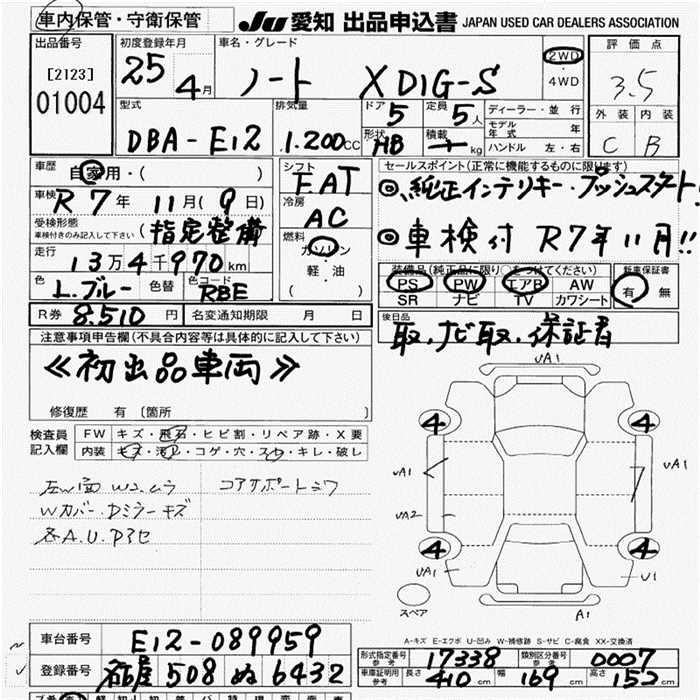 車内保管・守衛保管
JU 愛知 出品申込書 JAPAN USED CAR DEALERS ASSOCIATION
出品番号
[2123]
01004
初度登録年月
25 4月
車名・グレード
ノート X DIG-S
2WD
4WD
評価点
3.5
外装 内装
C B
型式
DBA-E12
排気量
1.200cc
ドア 5
定員 5人
形状 HB
積載 kg
ディーラー・並行
モデル年式 年
ハンドル 左・右
車歴
自家用・( )
車検
R7年 11月(9日)
受検形態
車検付きのみ記入して下さい
(指定整備
走行
13万4千970km
色 L.ブルー 色替 色コード RBE
シフト
FAT
冷房
AC
燃料
ガソリン
軽・油
( )
セールスポイント(正常に機能するものに限ります)
◎、純正インテリキー・プッシュスタート!
◎車検付 R7年11月!!
装備品(純正品に限り○をつけてください)
PS PW エアB AW
SR ナビ TV カワシート
新車保証書
有 無
R券 8.510円 名変通知期限 月 日
後日品
取、ナビ取、保証書
注意事項申告欄(不具合内容等は具体的に記入して下さい)
≪初出品車両≫
修復歴 有 〔箇所 〕
検査員記入欄
FW キズ・飛石・ヒビ割・リペア跡・X要
内装 キズ・汚レ・コゲ・穴・スレ・キレ・破レ
コアサポートシワ
Wカバー・Dミラーキズ
UA1
4 4
UA1 UA1
UA2
4 4
UA1 U1
スペア
A1
A-キズ E-エクボ U-凹み W-補修跡 S-サビ C-腐食 XX-交換済
車台番号 E12-089959
登録番号 名古屋 508 ぬ 6432
形式指定番号 参考 17338 類別区分番号 参考 0007
車庫証明用 参考 長さ 410cm 幅 169cm 高さ 152cm